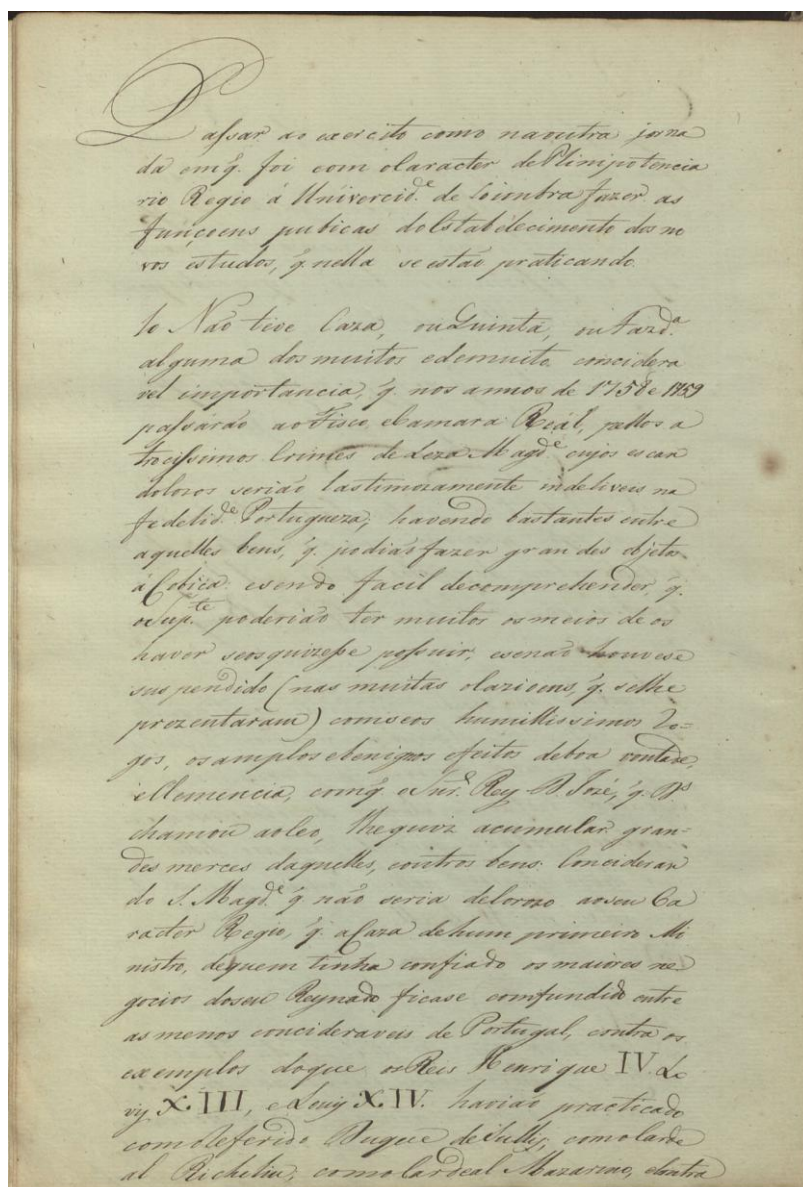 Passar ao exercito como na outra jorna
da em q̃. foi com o Caracter de Plinipotencia
rio Regio á Univercid.e de Coimbra fazer as
funçoens pubicas do Estabelecimento dos no
vos estudos, q̃. nella se estão praticando.
10 Não tive Caza, ou Quinta, ou Fazd.a
alguma dos muitos e de muito concidera
vel importancia, q̃. nos annos de 1758 e 1759
passárão ao Fisco, e Camara Reál, pellos a
trocissimos Crimes de Leza Magd.e cujos escan
dolozos serião lastimozamente indeliveis na
fedelid.e Portugueza; havendo bastantes entre
aquelles bens, q̃. podiás fazer grandes objetos
á Cobiça: e sendo facil de comprehender, q̃.
o Sup.te poderião ter muitos os meios de os
haver se os quizesse possuir, e se não houvese
suspendido (nas muitas olazioens, q̃. se lhe
prezentaram) com seos humillissimos Ro=
gos, os amplos e benignos efeitos de boa vontade,
e Clemencia, com q̃. o Snr. Rey D. Jozé, q̃. D.s
chamou ao Ceo, lhe quiz acumular gran=
des merces daquelles, e outros bens: Concideran
do S. Magd.e q̃. não seria deloroso ao seu Ca
racter Regio, q̃. a Caza de hum primeiro Mi
nistro, de quem tinha confiado os maiores ne
gocios do seu Reynado ficase comfundido entre
as menos concideraveis de Portugal, contra os
exemplos do que os Reis Henrique IV. Lo
vy XIII, e Louiy XIV. havião practicado
com o Referido Duque de Sully, com o Carde
al Richeliu; com o Cardeal Mazarino, e contra